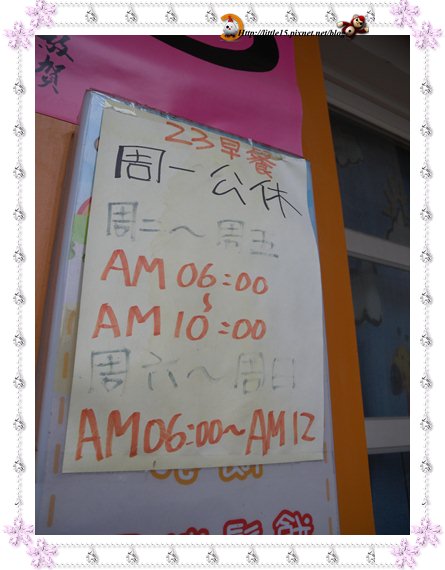 http://little15.pixnet.net/blog
敬賀
23早餐
周一公休
周二～周五
AM 06:00
~
AM 10:00
周六～周日
AM 06:00～AM 12
鬆餅